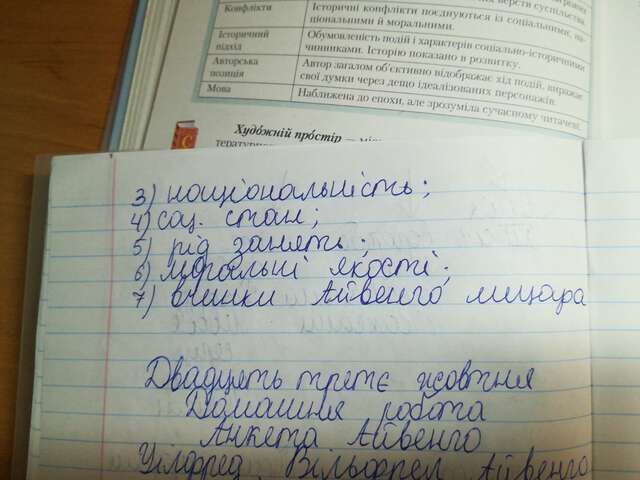 верств суспільства.
Конфлікти
Історичні конфлікти поєднуються із соціальними, на-
ціональними й моральними.
Історичний
підхід
Обумовленість подій і характерів соціально-історичними
чинниками. Історію показано в розвитку.
Авторська
позиція
Автор загалом об'єктивно відображає хід подій, виражає
свої думки через дещо ідеалізованих персонажів.
Мова
Наближена до епохи, але зрозуміла сучасному читачеві.
Художній простір —
3) національність;
4) соц. стан;
5) рід занять;
6) моральні якості;
7) вчинки Айвенго лицаря
Двадцять третє жовтня
Домашня робота
Анкета Айвенго
Уілфред Айвенго